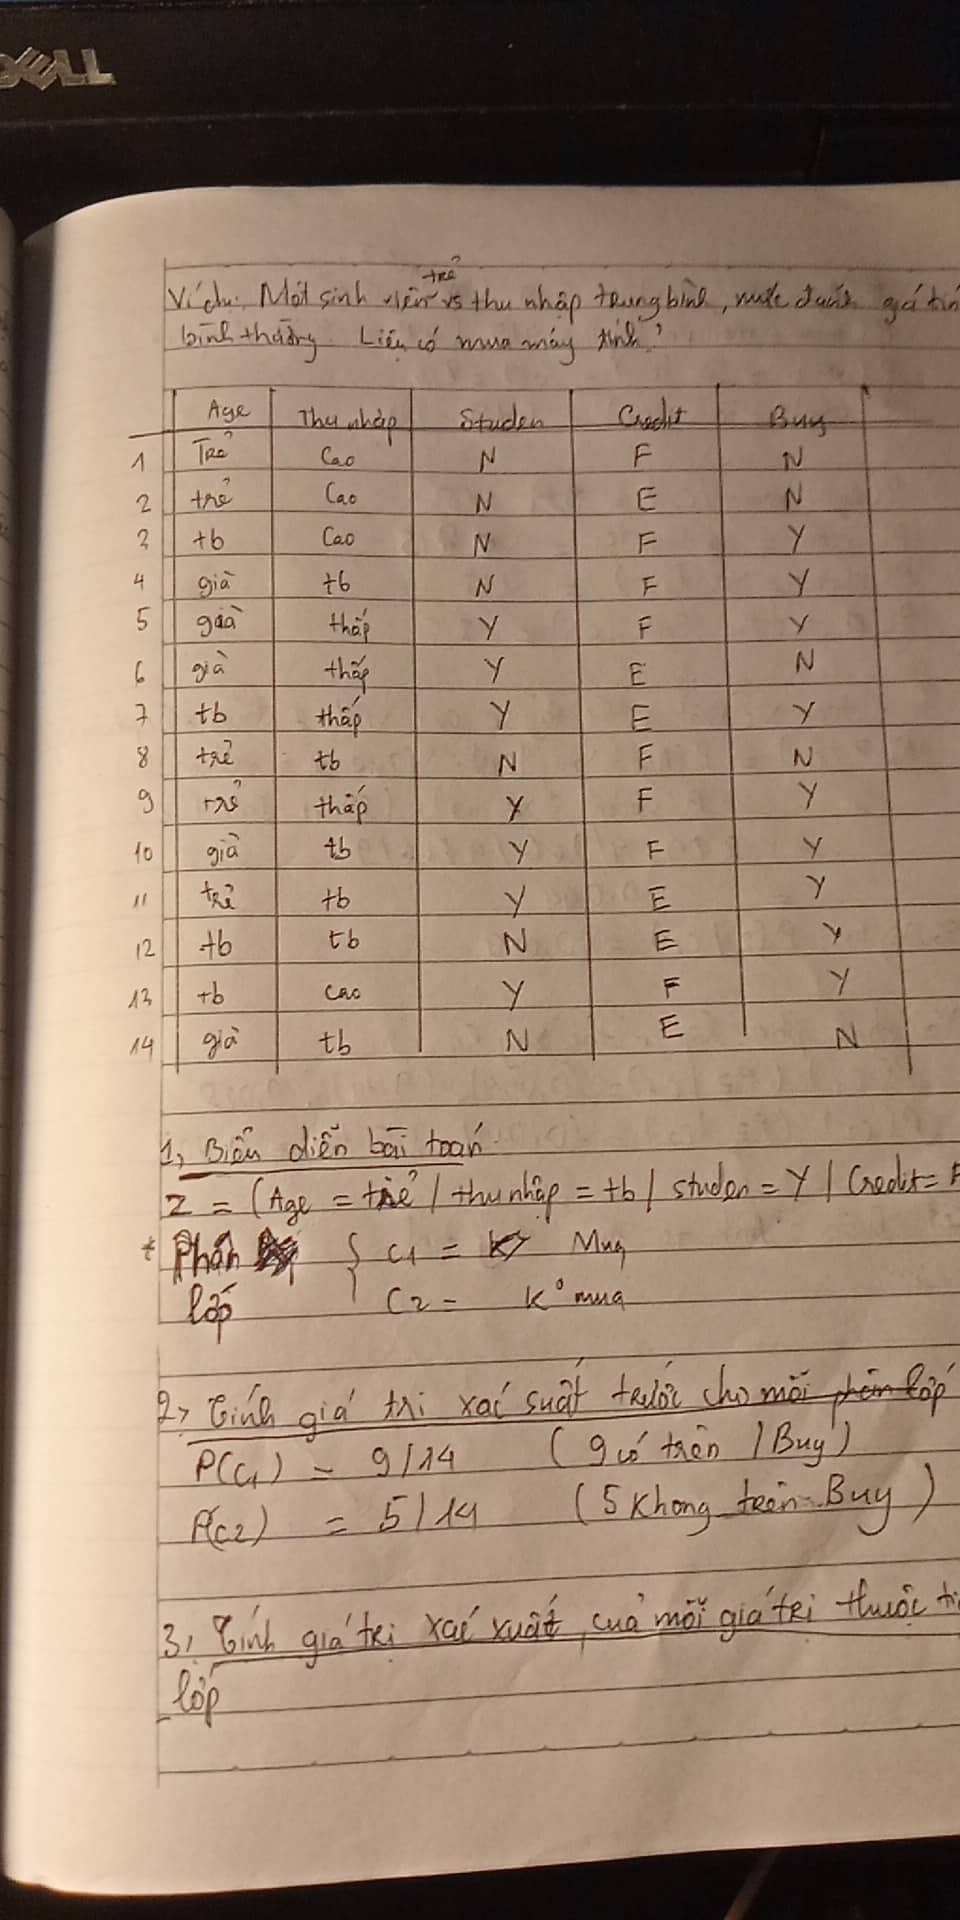 DELL
Ví dụ: Một sinh viên trẻ vs thu nhập trung bình, mức đánh giá tín
bình thường. Liệu có mua máy tính?
Age Thu nhập Studen Credit Buy
1 Trẻ Cao N F N
2 trẻ Cao N E N
3 tb Cao N F Y
4 già tb N F Y
5 già thấp Y F Y
6 già thấp Y E N
7 tb thấp Y E Y
8 trẻ tb N F N
9 trẻ thấp Y F Y
10 già tb Y F Y
11 trẻ tb Y E Y
12 tb tb N E Y
13 tb cao Y F Y
14 già tb N E N
1, Biễu diễn bài toán
Z = (Age = trẻ / thu nhập = tb / studen = Y / Credit = F
* Phân { C1 = Mua
lớp C2 = K° mua
2, Tính giá trị xác suất trước cho mỗi phân lớp
P(C1) = 9/14 (9 có trên / Buy)
P(C2) = 5/14 (5 Không trên Buy)
3, Tính giá trị xác xuất, của mỗi giá trị thuộc
lớp